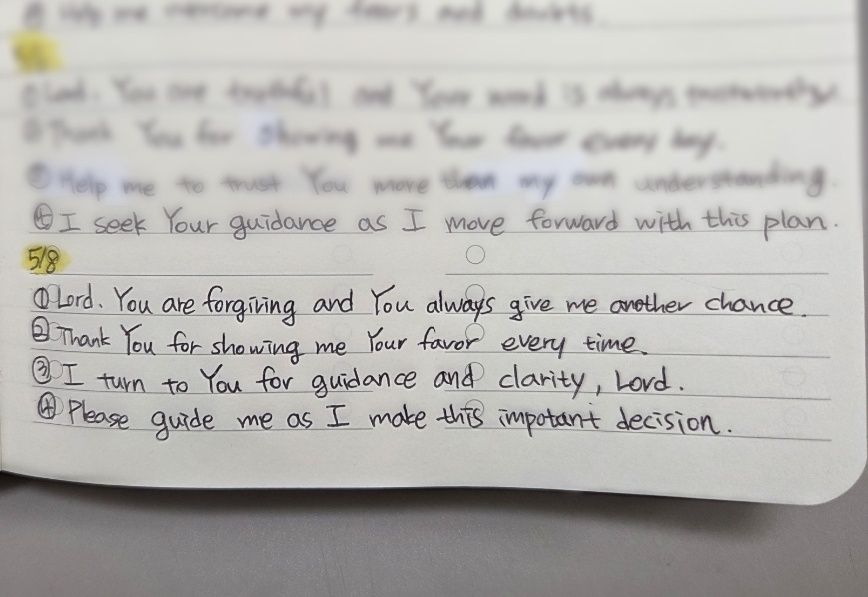 Help me overcome my fears and doubts.
Lord. You are truthful and Your word is always trustworthy.
② Thank You for showing me Your favor every day.
③ Help me to trust You more than my own understanding.
④ I seek Your guidance as I move forward with this plan.
5/8
① Lord. You are forgiving and You always give me another chance.
② Thank You for showing me Your favor every time.
③ I turn to You for guidance and clarity, Lord.
④ Please guide me as I make this impotant decision.